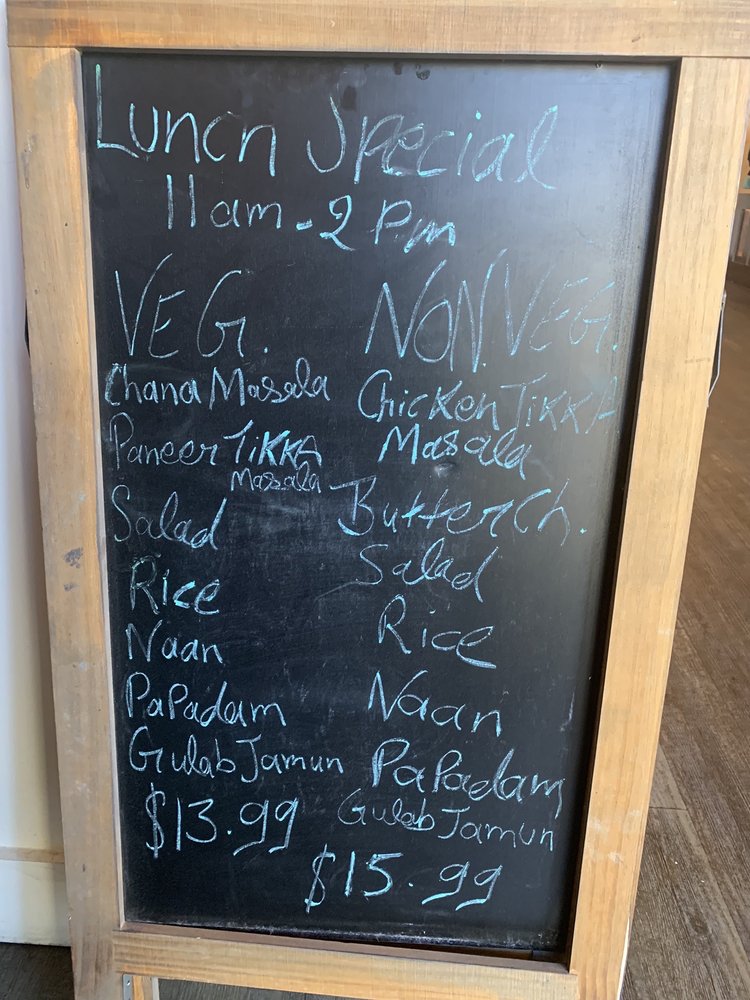 Lunch Special
11am - 2 Pm
VEG.
Chana Masala
Paneer TIKKA
Masala
Salad
Rice
Naan
PaPadam
Gulab Jamun
$13.99
NON.VEG.
Chicken TIKKA
Masala
Butter Ch.
Salad
Rice
Naan
PaPadam
Gulab Jamun
$15.99